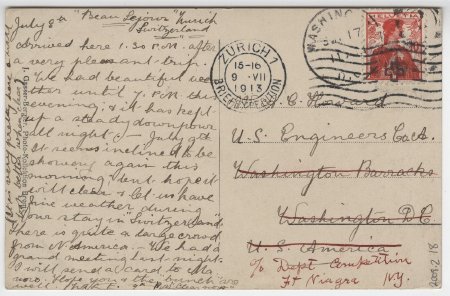 July 8th "Beau Sejour" Zurich
Switzerland
Arrived here 1.30 P.M. after
a very pleasant trip.
We had beautiful wea-
ther until 7 P.M. this
evening; & it has kept
up a steady downpour
all night. — July 9th
It seems inclined to be
showery again this
morning, but hope it
will clear & let us have
fine weather during
our stay in "Switzerland"
There is quite a large crowd
from N. America. We had a
grand meeting last night.
I will send a card to Ma
now. Hope you & the "bunch" are
well.
It is very pretty here
ZÜRICH 1
15-16
9 -VII
1913
WASHING
17
HELVETIA
10
C. Howard
U.S. Engineers Co. A.
Washington Barracks
Washington D.C.
U.S. America
c/o Dept Competition
Ft Niagra N.Y.
2009.2.18